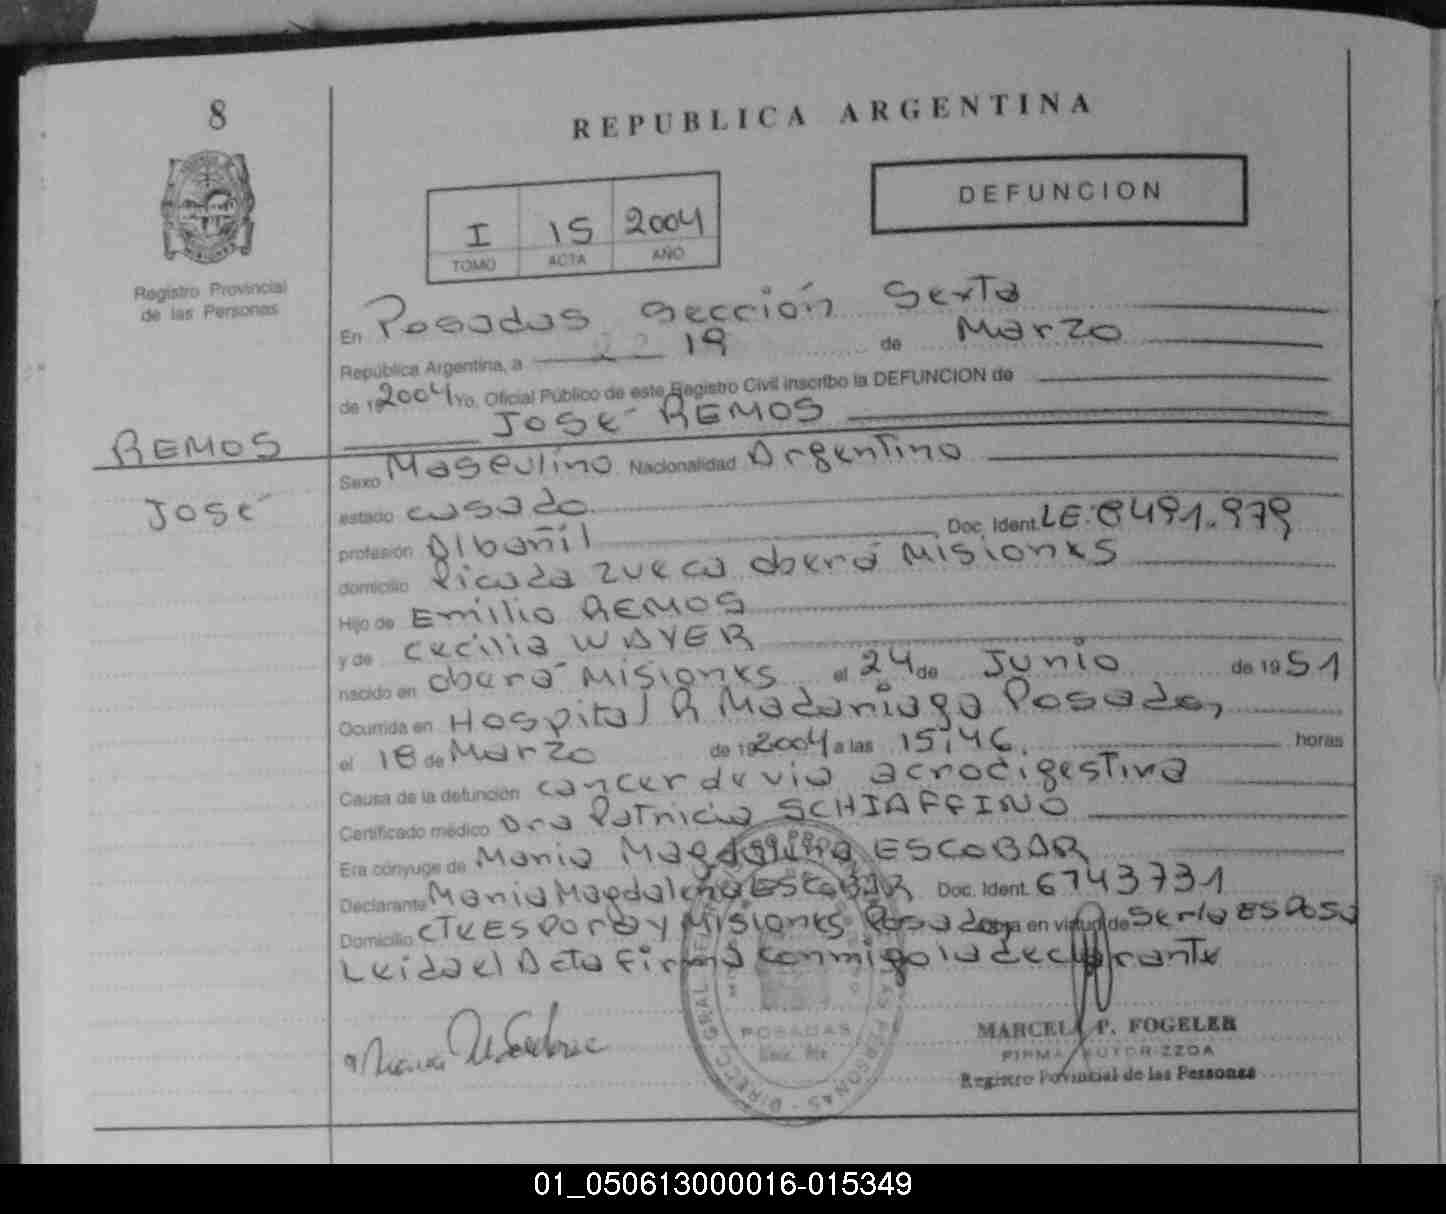 8
REPUBLICA ARGENTINA
I 15 2004
TOMO ACTA AÑO
DEFUNCION
Registro Provincial
de las Personas
En Posadas sección Sexta
República Argentina, a 19 de Marzo
de 19 2004 Yo, Oficial Público de este Registro Civil inscribo la DEFUNCION de
José REMOS
REMOS
José
Sexo Masculino Nacionalidad Argentino
estado casado
profesión Albañil Doc. Ident. LE. 8491.979
domicilio Picada zueca oberá Misiones
Hijo de Emilio REMOS
y de Cecilia WAYER
nacido en oberá Misiones el 24 de Junio de 1951
Ocurrida en Hospital R Madariaga Posadas,
el 18 de Marzo de 19 2004 a las 15,46. horas
Causa de la defunción cancer de via acrodigestiva
Certificado médico Dra Patricia SCHIAFFINO
Era cónyuge de Maria Magdalena ESCOBAR
Declarante Maria Magdalena ESCOBAR Doc. Ident. 6743731
Domicilio CTE Espora y Misiones Posadas obra en virtud de Serla ESPOSA
Leida el Acta firma conmigo la declarante
POSADAS
MARCELA P. FOGELER
FIRMA AUTORIZZDA
Registro Povincial de las Personas
01_050613000016-015349